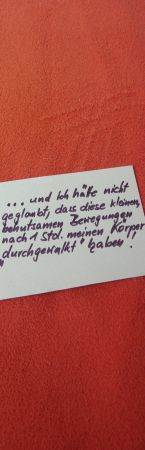 ... und ich hätte nicht
geglaubt, dass diese kleinen,
behutsamen Bewegungen
nach 1 Std. meinen Körper
durchgewalkt" haben.
"